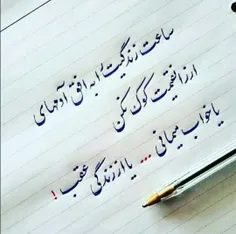 ساعت زندگیت را به افق آدمهای
ارزانقیمت کوک نکن
یا خواب میمانی ... یا از زندگی عقب !